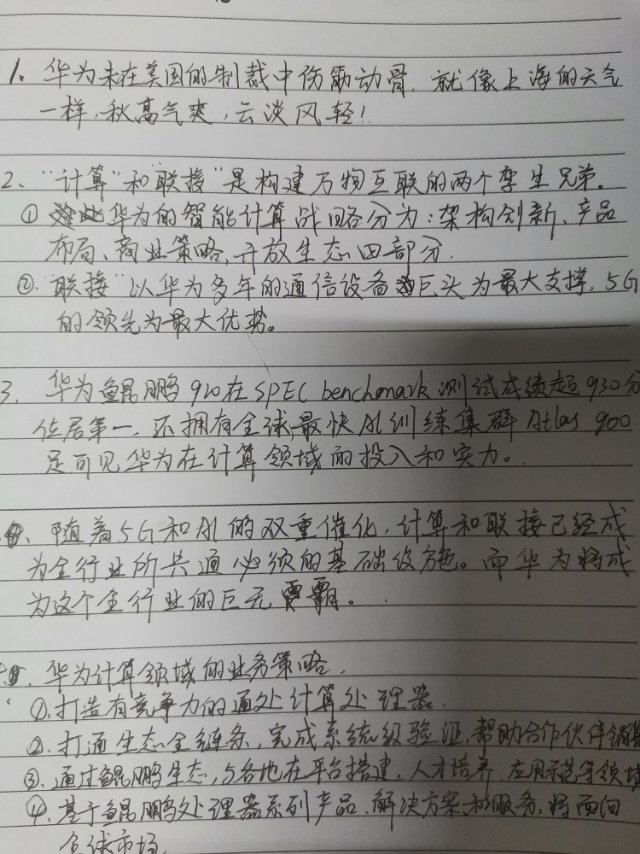 1、华为未在美国的制裁中伤筋动骨，就像上海的天气
一样，秋高气爽，云淡风轻！
2、“计算”和“联接”是构建万物互联的两个孪生兄弟。
① 华为的智能计算战略分为：架构创新、产品
布局、商业策略、开放生态四部分.
②.“联接”以华为多年的通信设备巨头为最大支撑，5G
的领先为最大优势。
3、华为鲲鹏920在SPEC benchmark测试成绩超930分
位居第一，还拥有全球最快AI训练集群Atlas 900
足可见华为在计算领域的投入和实力。
、随着5G和AI的双重催化，计算和联接已经成
为全行业所共通必须的基础设施。而华为将成
为这个全行业的巨无霸。
、华为计算领域的业务策略.
①.打造有竞争力的通处计算处理器
②.打通生态全链条，完成系统级验证，帮助合作伙伴
③.通过鲲鹏生态，与各地在平台搭建、人才培养、应用示范等领域
④.基于鲲鹏处理器系列产品、解决方案和服务，将面向
全球市场.